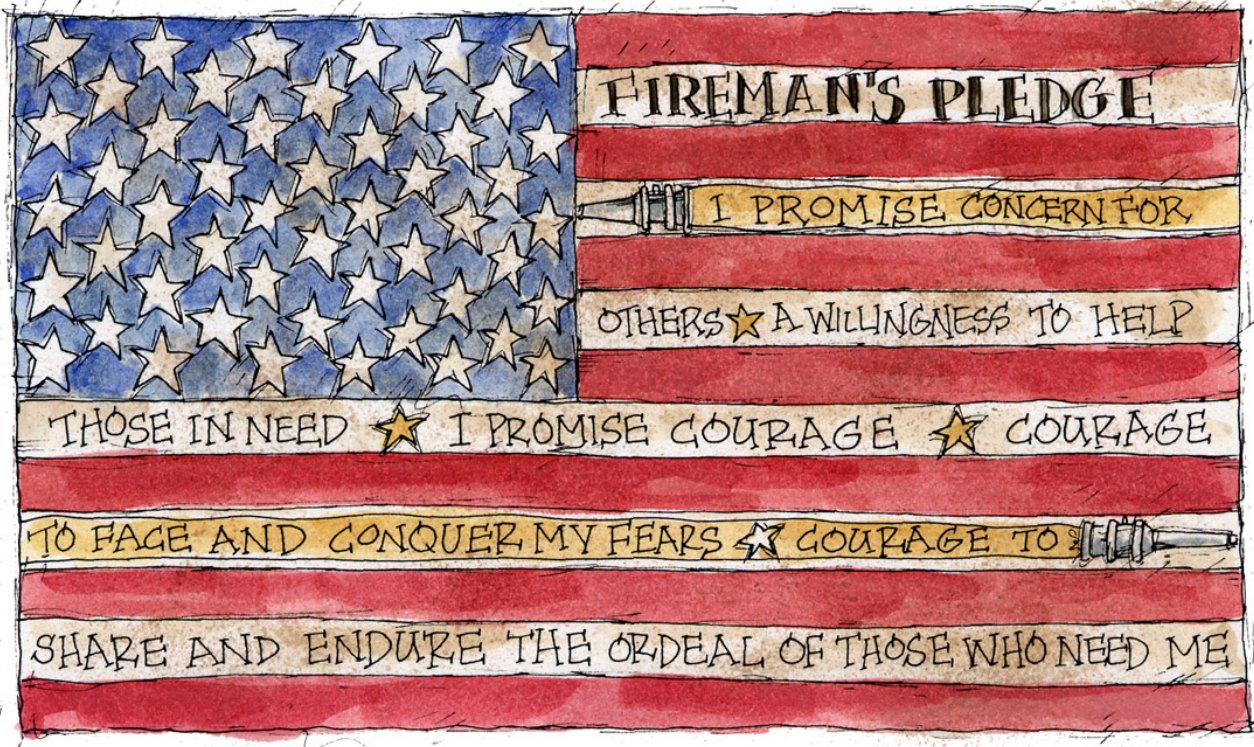 FIREMAN'S PLEDGE
I PROMISE CONCERN FOR
OTHERS A WILLINGNESS TO HELP
THOSE IN NEED I PROMISE COURAGE COURAGE
TO FACE AND CONQUER MY FEARS COURAGE TO
SHARE AND ENDURE THE ORDEAL OF THOSE WHO NEED ME